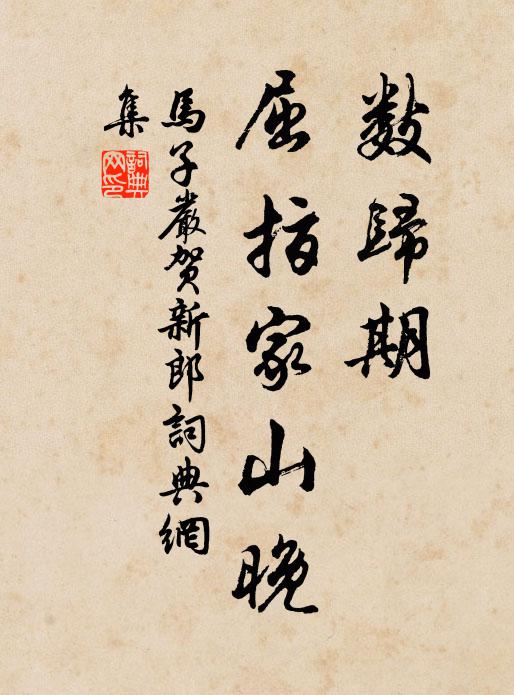 數歸期
屈指家山晚
馬子嚴賀新郎詞典網
集
詞典
网印